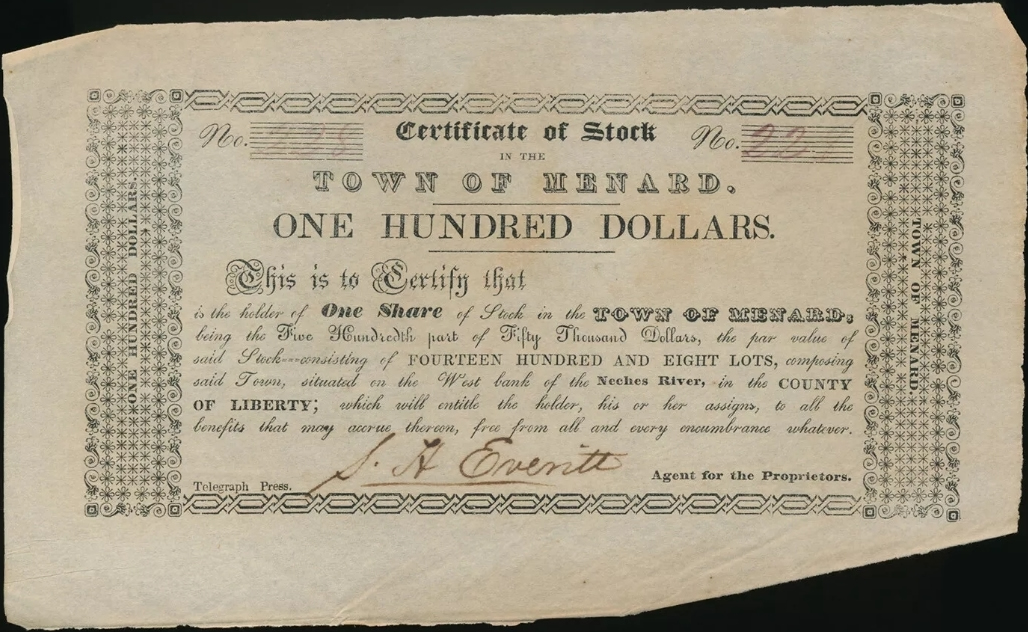 No. 228 Certificate of Stock No. 22
IN THE
TOWN OF MENARD.
ONE HUNDRED DOLLARS.
This is to Certify that
is the holder of One Share of Stock in the TOWN OF MENARD,
being the Five Hundredth part of Fifty Thousand Dollars, the par value of
said Stock---consisting of FOURTEEN HUNDRED AND EIGHT LOTS, composing
said Town, situated on the West bank of the Neches River, in the COUNTY
OF LIBERTY; which will entitle the holder, his or her assigns, to all the
benefits that may accrue thereon, free from all and every encumbrance whatever.
S. H Everitt
Agent for the Proprietors.
Telegraph Press.
ONE HUNDRED DOLLARS.
TOWN OF MENARD.